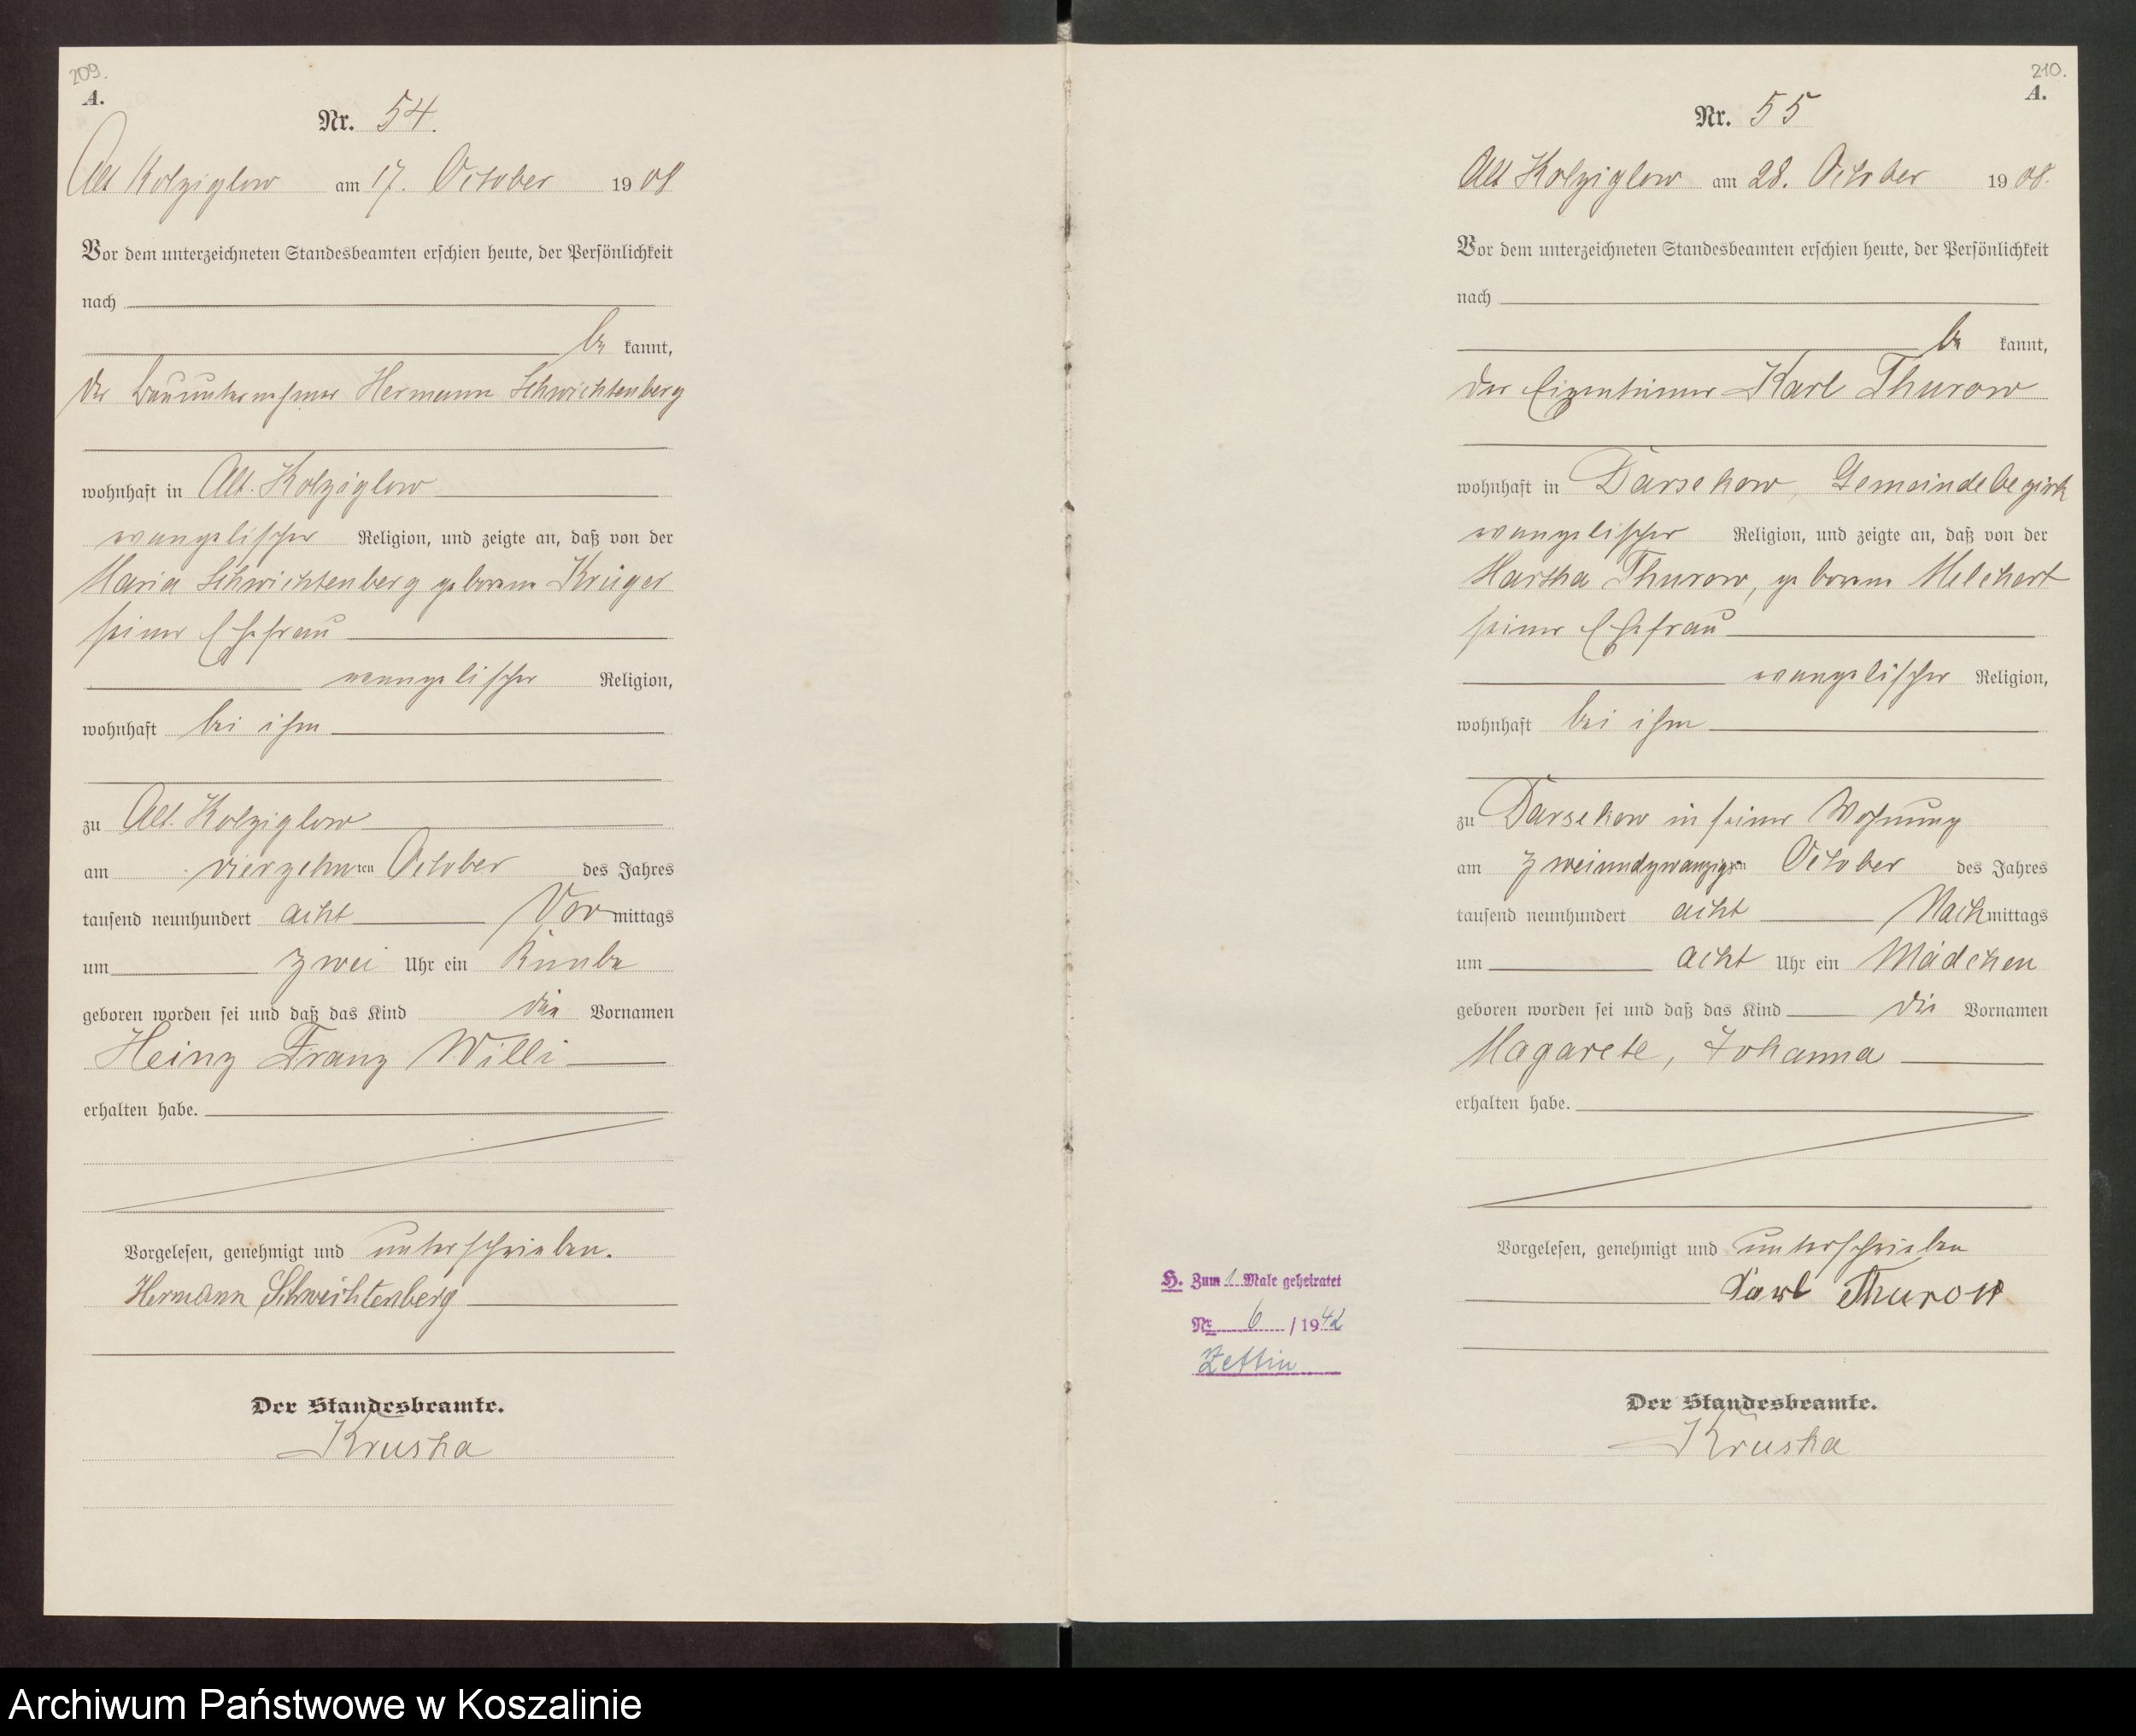 209.
A.
Nr. 54.
Alt Kolziglow am 17. October 1908
Vor dem unterzeichneten Standesbeamten erschien heute, der Persönlichkeit
nach
be kannt,
der Bauunternehmer Hermann Schwichtenberg
wohnhaft in Alt. Kolziglow
evangelischer Religion, und zeigte an, daß von der
Maria Schwichtenberg geborene Krüger
seiner Ehefrau
evangelischer Religion,
wohnhaft bei ihm
zu Alt. Kolziglow
am vierzehnten October des Jahres
tausend neunhundert acht Vormittags
um zwei Uhr ein Knabe
geboren worden sei und daß das Kind die Vornamen
Heinz Franz Willi
erhalten habe.
Vorgelesen, genehmigt und unterschrieben.
Hermann Schwichtenberg
Der Standesbeamte.
Kruska
210.
A.
Nr. 55
Alt Kolziglow am 28. October 1908.
Vor dem unterzeichneten Standesbeamten erschien heute, der Persönlichkeit
nach
be kannt,
der Eigentümer Karl Thurow
wohnhaft in Darsekow, Gemeindebezirk
evangelischer Religion, und zeigte an, daß von der
Martha Thurow, geborene Melchert
seiner Ehefrau
evangelischer Religion,
wohnhaft bei ihm
zu Darsekow in seiner Wohnung
am zweiundzwanzigsten October des Jahres
tausend neunhundert acht Nachmittags
um acht Uhr ein Mädchen
geboren worden sei und daß das Kind die Vornamen
Magarete, Johanna
erhalten habe.
Vorgelesen, genehmigt und unterschrieben
Karl Thurow
Der Standesbeamte.
Kruska
H. Zum 1 Male geheiratet
Nr. 6 / 1942
Zettin
Archiwum Państwowe w Koszalinie